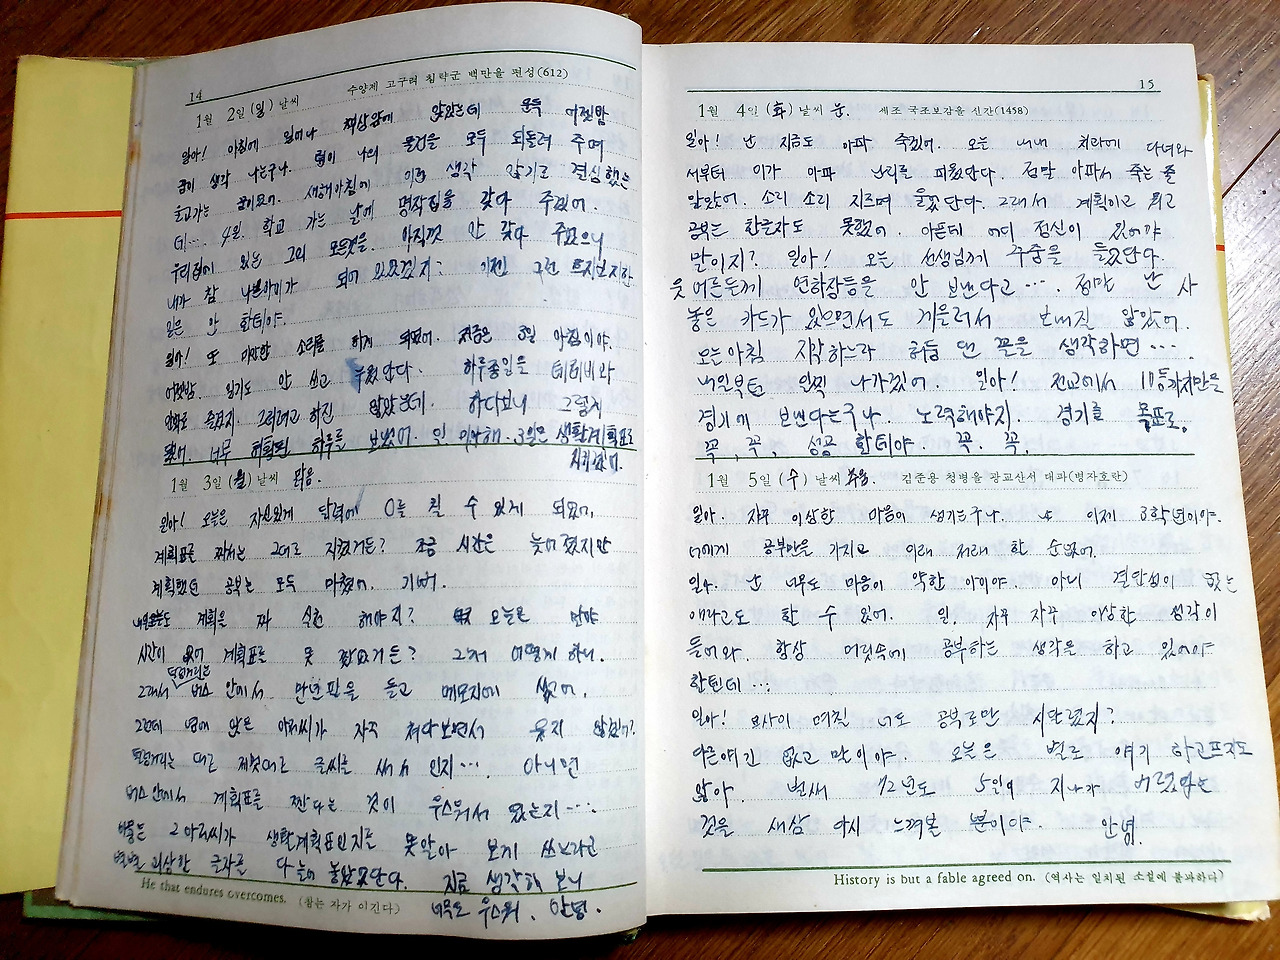 14
수양제 고구려 침략군 백만을 편성(612)
1월 2일 (일) 날씨
일아! 아침에 일어나 책상앞에 앉았는데 문득 어젯밤
꿈이 생각 나는구나. 나의 물건을 모두 되돌려 주며
꿈이었어. 새해아침에 이런 생각 않기로 결심했는
4일. 학교 가는 날에 명작집을 갖다 주겠어.
우리집에 있는 그의 모든것을. 아직껏 안 갖다 주었으니
내가 참 나쁜아이가 되어 있었겠지? 이젠 그런
일은 안 할테야.
일아! 또 미안한 소리를 하게 되었어. 지금은 3일 아침이야.
어젯밤. 일기도 안 쓰고 누웠단다. 하루종일을 테레비와
만화로 즐겼지. 그러려고 하진 않았는데. 하다보니 그렇게
됐어. 너무 허황된 하루를 보냈어. 일 미안해. 3일은 생활계획표로
지키겠어.
1월 3일 (월) 날씨 맑음.
일아! 오늘은 자신있게 달력에 O를 칠 수 있게 되었어.
계획표를 짜서는 그대로 지켰거든? 조금 시간은 늦어졌지만
계획했던 공부는 모두 마쳤어. 기뻐.
내일도 계획을 짜 실천 해야지? 오늘은
시간이 없어 계획표를 못 짰었거든? 그래서 어떻게 하니.
덜컹거리는
그래서 버스 안에서 만년필을 들고 메모지에 썼어.
그런데 옆에 앉은 아저씨가 자꾸 쳐다보면서 웃지 않겠어?
덜컹거리는 대로 제멋대로 글씨를 써서 인지···. 아니면
버스안에서 계획표를 짠다는 것이 우스워서 였는지···.
나는 그 아저씨가 생활계획표인지를 못알아 보게 쓰느라고
별별 괴상한 글자를 다 늘어 놓았었단다. 지금 생각해 보니
너무도 우스워. 안녕.
He that endures overcomes. (참는 자가 이긴다)
15
1월 4일 (화) 날씨 눈. 세조 국조보감을 신간(1458)
일아! 난 지금도 아파 죽겠어. 오늘 내내 치과에 다녀와
서부터 이가 아파 난리를 피웠단다. 정말 아파서 죽는 줄
알았어. 소리 소리 지르며 울었단다. 그래서 계획이고 뭐고
공부는 한글자도 못했어. 아픈데 어디 정신이 있어야
말이지? 일아! 오늘 선생님께 꾸중을 들었단다.
웃어른들께 연하장등을 안 보낸다고···. 정말 난 사
놓은 카드가 있으면서도 게을러서 보내질 않았어.
오늘아침 지각하느라 허둥 댄 꼴을 생각하면···.
내일부턴 일찍 나가겠어. 일아! 전교에서 10등까지만을
경기에 보낸다는구나. 노력해야지. 경기를 목표로.
꼭, 꼭, 성공 할테야. 꼭. 꼭.
1월 5일 (수) 날씨 김준용 청병을 광교산서 대파(병자호란)
일아. 자꾸 이상한 마음이 생기는구나. 난 이제 3학년이야.
너에게 공부만을 가지고 이래 저래 할 순없어.
일아. 난 너무도 마음이 약한 아이야. 아니 결단성이 없는
애라고도 할 수 있어. 일. 자꾸 자꾸 이상한 생각이
들어와. 항상 머릿속에 공부하는 생각을 하고 있어야
할텐데···.
일아! 요사이 며칠 너도 공부로만 시달렸지?
다른얘긴 없고 말이야. 오늘은 별로 얘기 하고프지도
않아. 벌써 72년도 5일이 지나가 버렸다는
것을 새삼 다시 느껴본 뿐이야. 안녕.
History is but a fable agreed on. (역사는 일치된 소설에 불과하다)